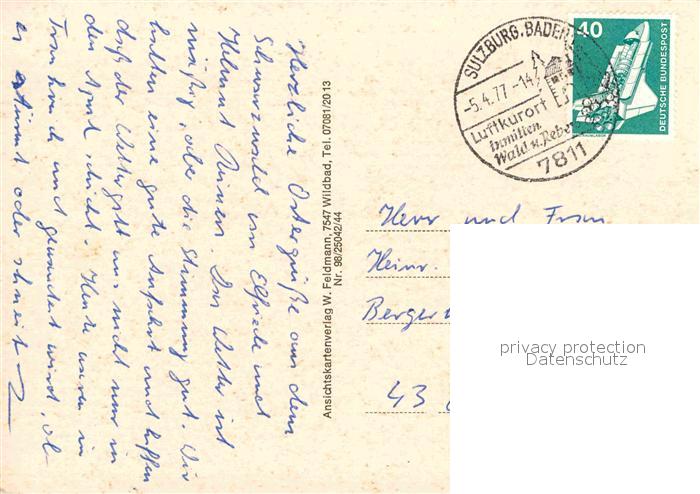 Herzliche Ostergrüße aus dem
Schwarzwald von Elfriede und
Helmut Das Wetter ist
mäßig, aber die Stimmung gut. Wir
hatten eine gute Anfahrt und hoffen
daß der Wettergott uns nicht nur in
den April schickt. Heute waren in
und gewandert wird, ob
es stürmt oder schneit
Ansichtskartenverlag W. Feldmann, 7547 Wildbad, Tel. 07081/2013
Nr. 98/25042/44
SULZBURG, BADEN
-5.4.77.-14
Luftkurort
inmitten
Wald u. Rebe
7811
40
DEUTSCHE BUNDESPOST
Herr und Frau
Heinr.
43
privacy protection
Datenschutz